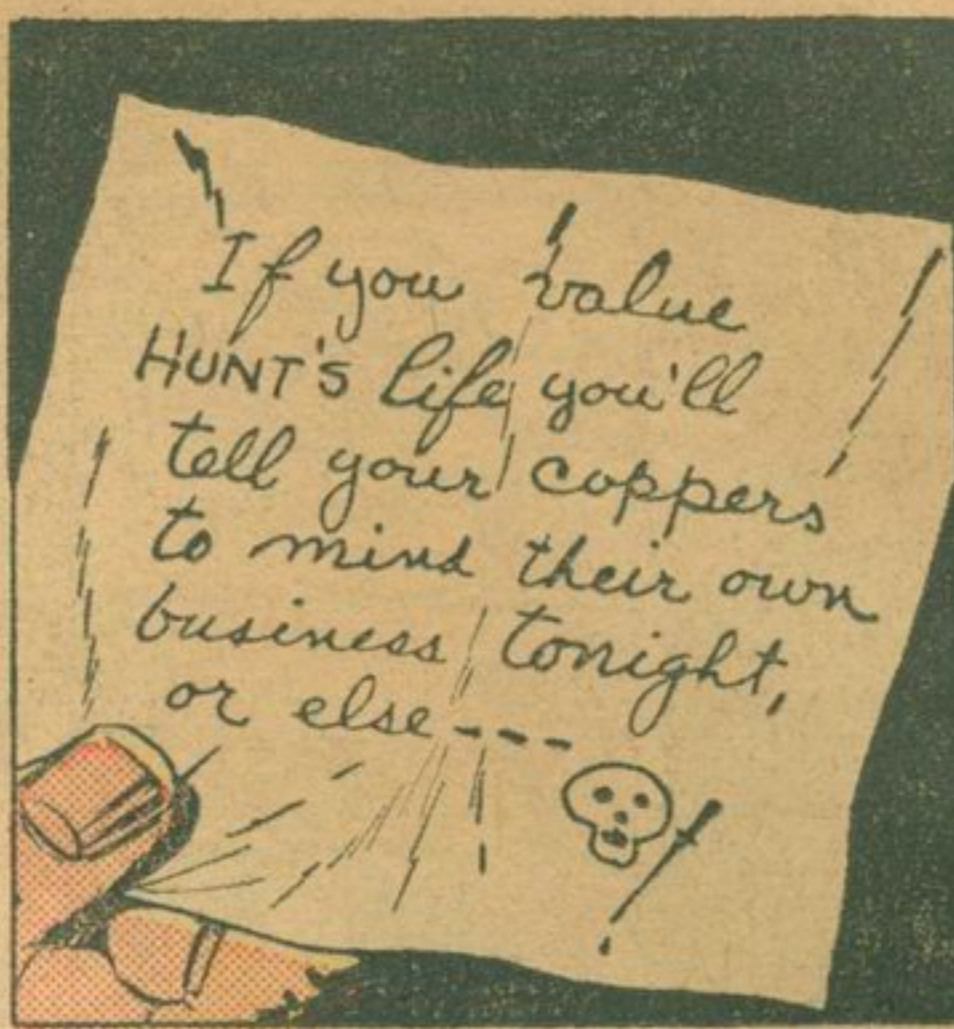 If you value
HUNT'S life you'll
tell your coppers
to mind their own
business tonight,
or else----